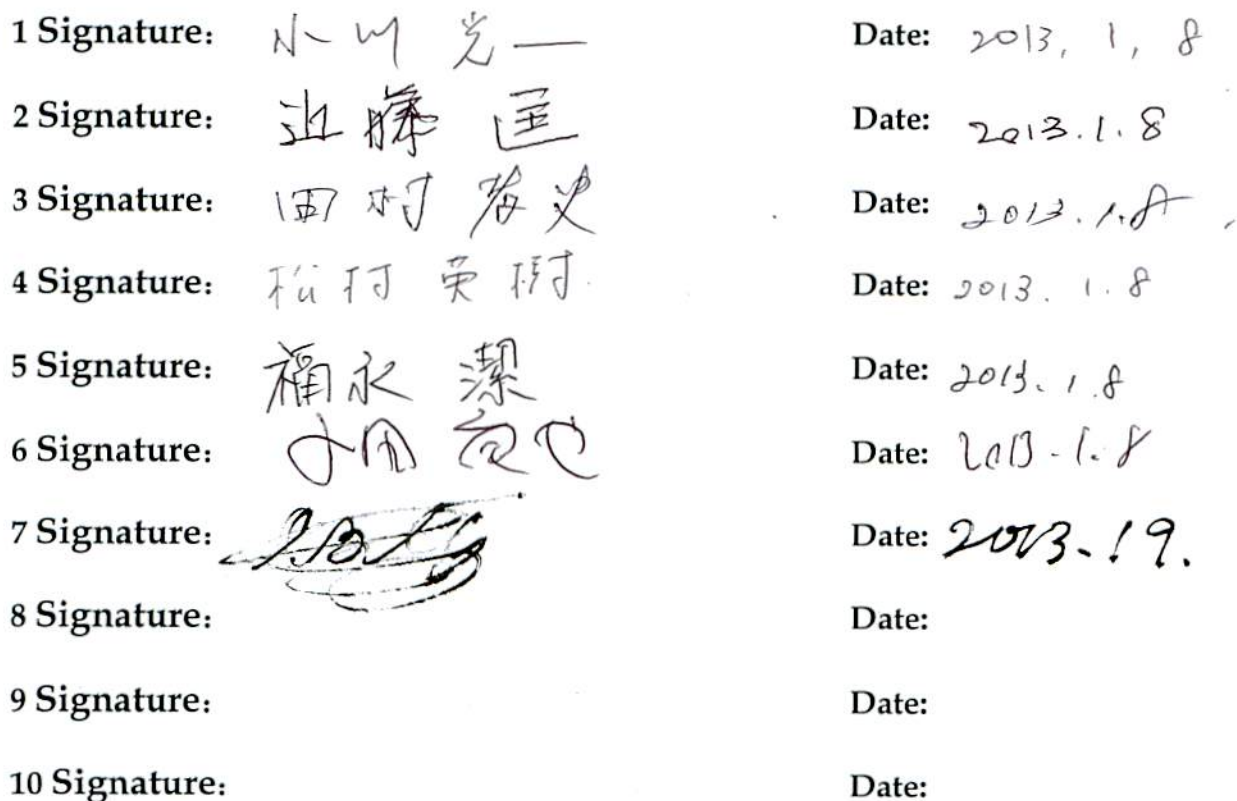 1 Signature: 小川 光一 Date: 2013, 1, 8
2 Signature: 近藤 匡 Date: 2013.1.8
3 Signature: 田村 Date: 2013.1.8
4 Signature: 松村 英樹 Date: 2013. 1. 8
5 Signature: 福永 潔 Date: 2013. 1. 8
6 Signature: Date: 2013-1.8
7 Signature: Date: 2013-19.
8 Signature: Date:
9 Signature: Date:
10 Signature: Date: